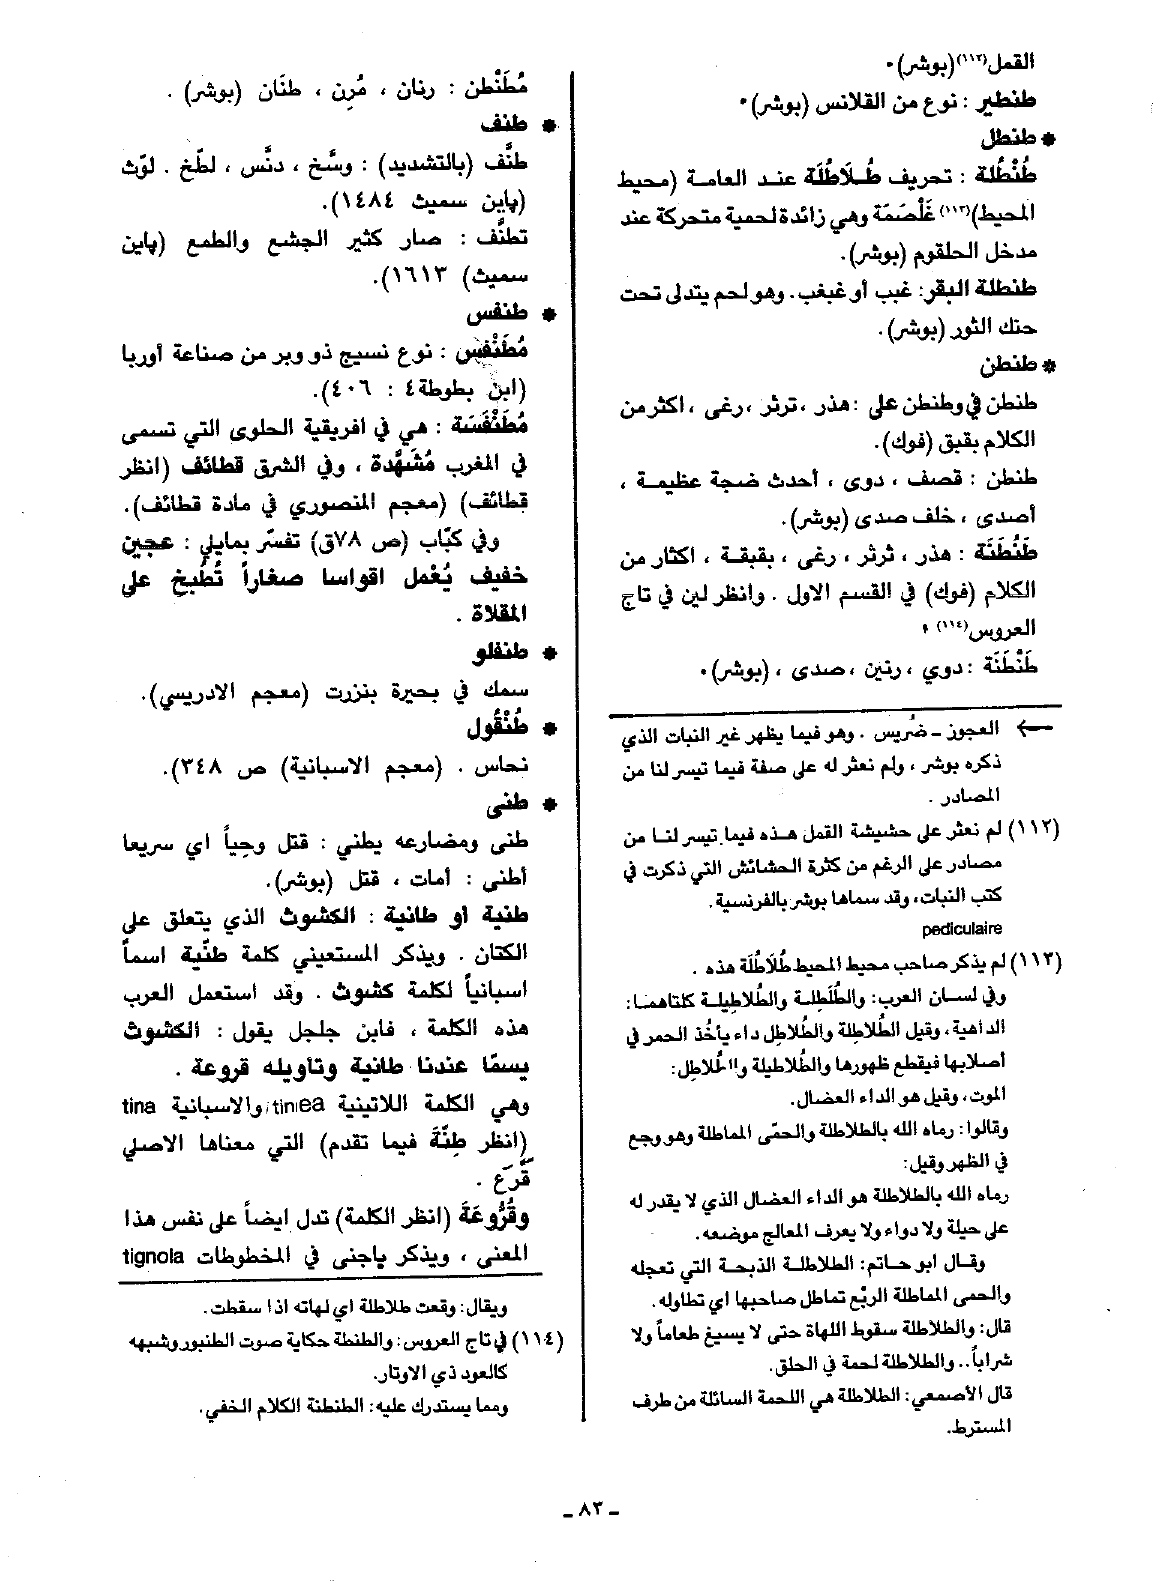 القمل(١١٢) (بوشر).
طنطير : نوع من القلانس (بوشر).
* طنطل
طُنْطُلة : تحريف طُلَاطُلَة عند العامة (محيط
المحيط)(١١٣) غَلْصَمَة وهي زائدة لحمية متحركة عند
مدخل الحلقوم (بوشر).
طنطلة البقر: غبب أو غبغب. وهو لحم يتدلى تحت
حنك الثور (بوشر).
* طنطن
طنطن في وطنطن على : هذر ، ثرثر ، رغى ، اكثر من
الكلام بقبق (فوك).
طنطن : قصف ، دوى ، أحدث ضجة عظيمة ،
أصدى ، خلف صدى (بوشر).
طَنْطَنَة : هذر ، ثرثر ، رغى ، بقبقة ، اكثار من
الكلام (فوك) في القسم الاول . وانظر لين في تاج
العروس(١١٤) .
طَنْطَنَة : دوي ، رنين ، صدى ، (بوشر).
← العجوز ـ ضُريس . وهو فيما يظهر غير النبات الذي
ذكره بوشر ، ولم نعثر له على صفة فيما تيسر لنا من
المصادر .
(١١٢) لم نعثر على حشيشة القمل هذه فيما تيسر لنا من
مصادر على الرغم من كثرة الحشائش التي ذكرت في
كتب النبات، وقد سماها بوشر بالفرنسية.
pediculaire
(١١٣) لم يذكر صاحب محيط المحيط طُلَاطُلَة هذه .
وفي لسان العرب: والطُلَطِلة والطُلاطِيلة كلتاهما:
الداهية، وقيل الطُلاطِلة والطُلاطِل داء يأخُذ الحمر في
أصلابها فيقطع ظهورها والطُلاطيلة والطُلاطِل:
الموت، وقيل هو الداء العضال.
وقالوا: رماه الله بالطلاطلة والحمّى المماطلة وهو وجع
في الظهر وقيل:
رماه الله بالطلاطلة هو الداء العضال الذي لا يقدر له
على حيلة ولا دواء ولا يعرف المعالج موضعه.
وقال ابو حاتم: الطلاطلة الذبحة التي تعجله
والحمى المماطلة الربْع تماطل صاحبها اي تطاوله.
قال: والطلاطلة سقوط اللهاة حتى لا يسيغ طعاماً ولا
شراباً.. والطلاطلة لحمة في الحلق.
قال الأصمعي: الطلاطلة هي اللحمة السائلة من طرف
المسترط.
مُطَنْطن : رنان ، مُرِن ، طنّان (بوشر) .
* طنف
طنَّف (بالتشديد) : وسَّخ ، دنَّس ، لطّخ . لوّث
(پاين سميث ١٤٨٤).
تطنَّف : صار كثير الجشع والطمع (پاين
سميث) ١٦١٣).
* طنفس
مُطَنْفِس : نوع نسيج ذو وبر من صناعة أوربا
(ابن بطوطة٤ : ٤٠٦).
مُطَنْفَسَة : هي في افريقية الحلوى التي تسمى
في المغرب مُشَهَّدة ، وفي الشرق قطائف (انظر
قطائف) (معجم المنصوري في مادة قطائف).
وفي كبّاب (ص ٧٨ق) تفسّر بمايلي : عجين
خفيف يُعْمل اقواسا صغاراً تُطبخ على
المقلاة .
* طنفلو
سمك في بحيرة بنزرت (معجم الادريسي).
* طُنْقُول
نحاس . (معجم الاسبانية) ص ٣٤٨).
* طنى
طنى ومضارعه يطني : قتل وجياً اي سريعا
أطنى : أمات ، قتل (بوشر).
طنية او طانية : الكشوث الذي يتعلق على
الكتان . ويذكر المستعيني كلمة طنّية اسماً
اسبانياً لكلمة كشوث . وقد استعمل العرب
هذه الكلمة ، فابن جلجل يقول : الكشوث
يسمّا عندنا طانية وتاويله قروعة .
وهي الكلمة اللاتينية tiniea والاسبانية tina
(انظر طِنَّةَ فيما تقدم) التي معناها الاصلي
قَرَع .
وقُرُّوعَة (انظر الكلمة) تدل ايضاً على نفس هذا
المعنى ، ويذكر پاجنى في المخطوطات tignola
ويقال: وقعت طلاطلة اي لهاته اذا سقطت.
(١١٤) في تاج العروس: والطنطة حكاية صوت الطنبور وشبهه
كالعود ذي الاوتار.
ومما يستدرك عليه: الطنطنة الكلام الخفي.
ـ ٨٣ ـ